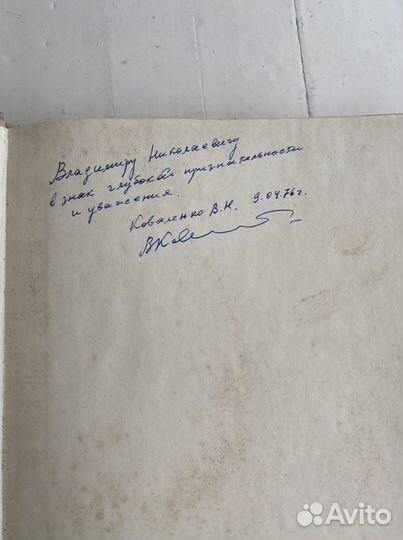 Владимиру Николаевичу
в знак глубокой признательности
и уважения.
Коваленко В.Н. 9.04.76г.
Avito